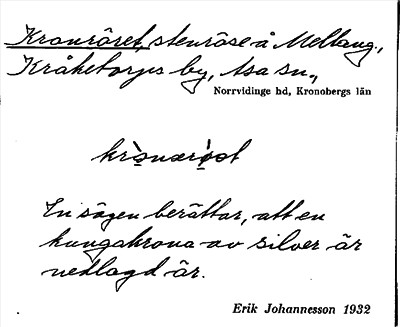 Kronröret, stenröse å Mellang.,
Kråketorps by, Asa sn.,
Norrvidinge hd, Kronobergs län
En sägen berättar, att en
kungakrona av silver är
nedlagd är.
Erik Johannesson 1932